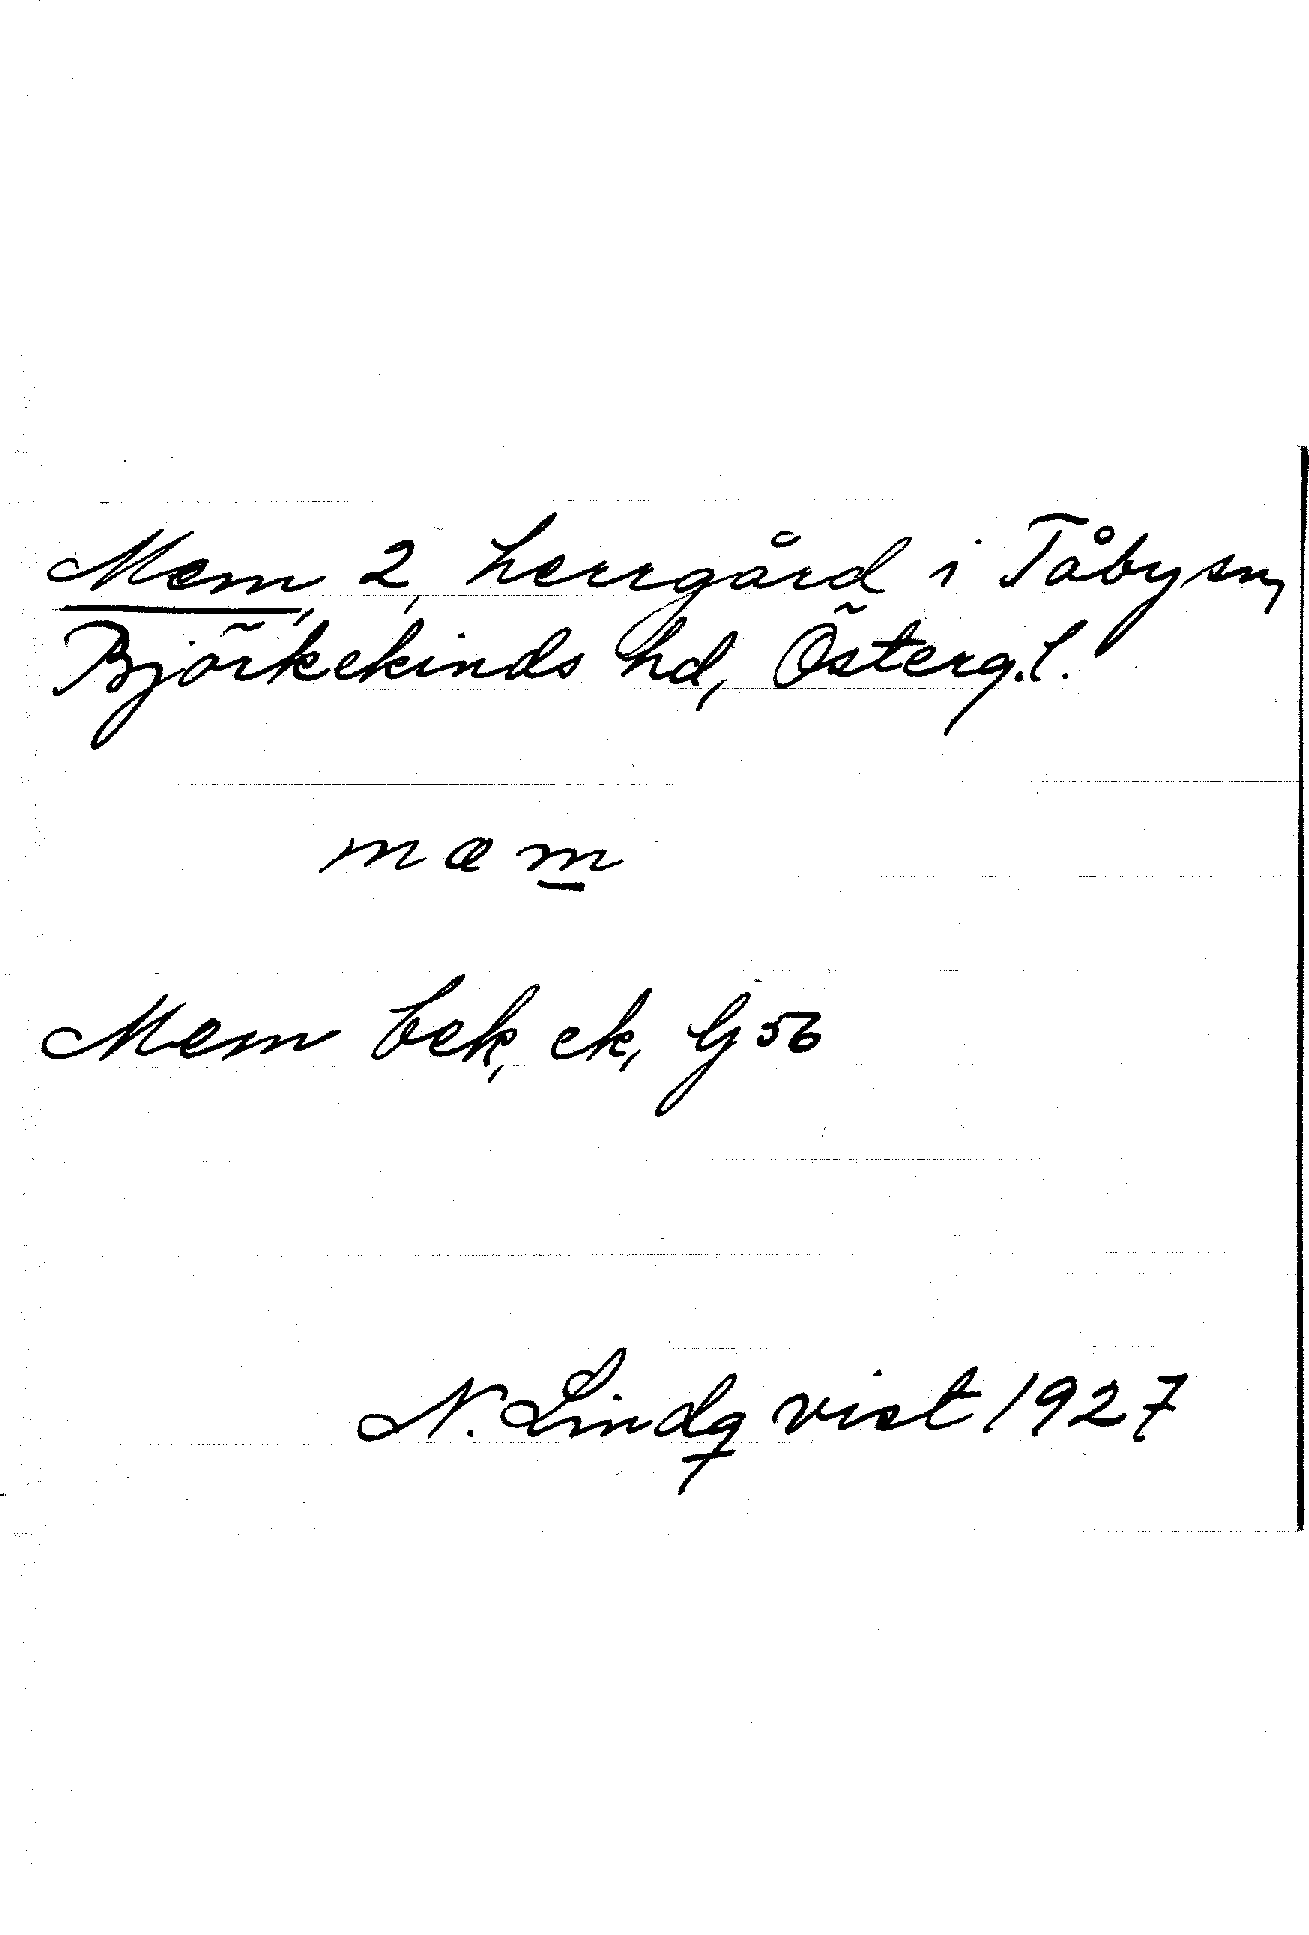 Mem, 2, herrgård i Tåby sn,
Björkekinds hd, Österg.l.
mæm
Mem bek, ek, G 56
N. Lindqvist 1927